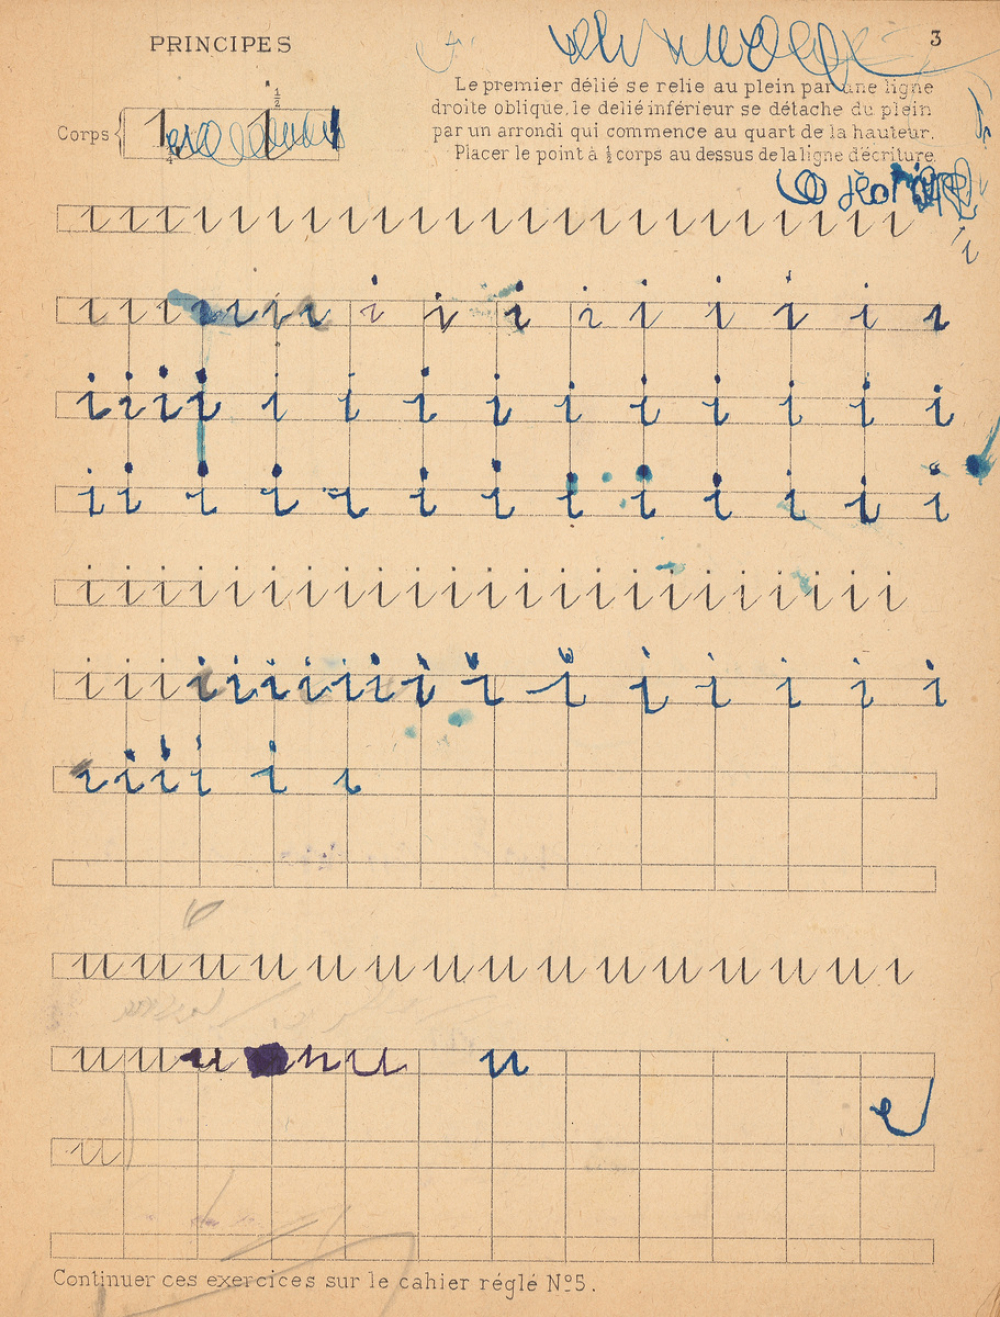 PRINCIPES
3
Le premier délié se relie au plein par une ligne
droite oblique, le delié inférieur se détache du plein
par un arrondi qui commence au quart de la hauteur.
Placer le point à ½ corps au dessus de la ligne d'écriture.
Corps { ı ı ½
ı ı ı ı ı ı ı ı ı ı ı ı ı ı ı ı ı ı ı ı ı ı ı
i
ı ı ı ı ı ı ı i i i i i i i i ı
i i i i i i i i i i i i i i
i i i i i i i i i i i i i
i i i i i i i i i i i i i i i i i i i i i i i
i i i i i i i i i i i i i i i i i
ı i i i i ı
u u u u u u u u u u u u u u ı
u u u n u u
e
u
Continuer ces exercices sur le cahier réglé Nº5.